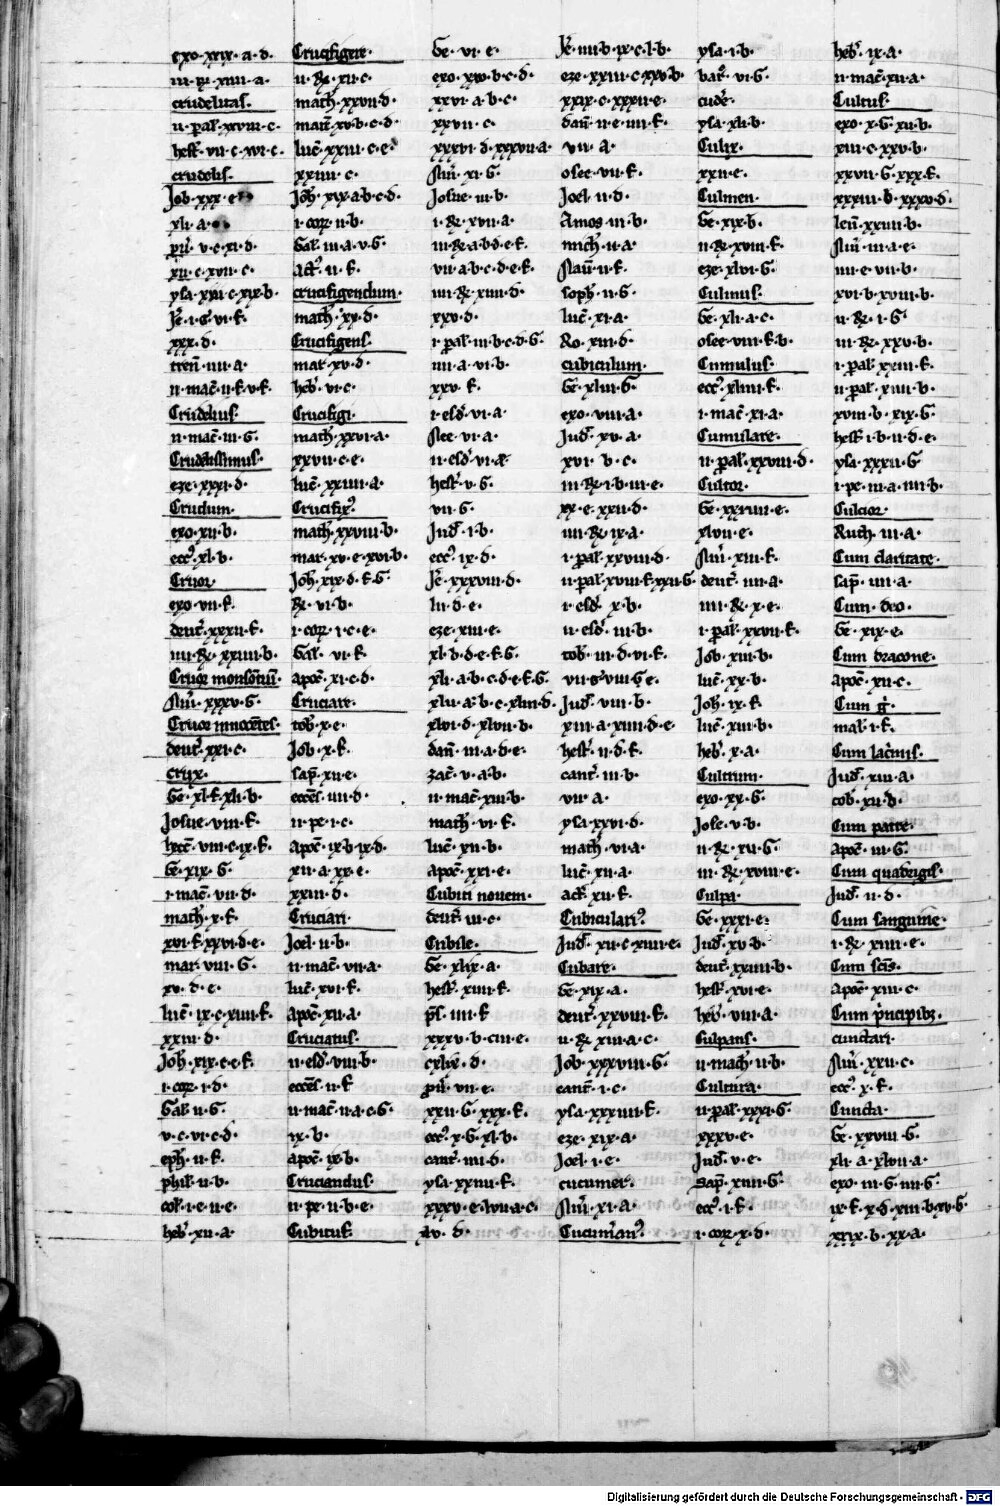 exo·xxix·a·d·
iii·R·xiii·a·
crudelitas·
ii·pal·xxviii·c·
hest·vii·c·xvi·c·
crudelis·
Job·xxx·e
xli·a·
pu·v·c·xi·d·
xii·c·xvii·c·
ysa·xiii·c·xix·b·
Je·i·G·vi·f·
xxx·d·
tren·iiii·a·
ii·mac·ii·f·v·f·
Crudelius·
ii·mac·iii·G·
Crudelissimus·
eze·xxxi·d·
Crudum·
exo·xii·b·
ecc·xl·b·
Cruor·
exo·vii·f·
deut·xxxii·f·
iiii·R·xxiii·b·
Nu·xxxv·G·
deut·xxi·c·
crux·
Ge·xl·f·xli·b·
Josue·viii·f·
hest·viii·c·ix·f·
Ge·xix·G·
i·mac·vii·d·
math·x·f·
xvi·f·xxvi·d·e·
mar·viii·G·
xv·d·e·
luc·ix·c·xiiii·f·
xxiii·d·
Joh·xix·c·e·f·
i·cor·i·d·
Gal·ii·G·
v·c·vi·c·d·
eph·ii·f·
phil·ii·b·
col·i·e·ii·e·
heb·xii·a·
Crucifigere·
ii·R·xii·c·
math·xxvii·d·
marc·xv·b·c·d·
luc·xxiii·c·e·
xxiiii·c·
Joh·xix·a·b·c·d·
i·cor·ii·b·
Gal·iii·a·v·G·
act·ii·f·
crucifigendum·
math·xx·d·
Crucifigens·
mar·xv·d·
heb·vi·c·
Crucifigi·
math·xxvi·a·
xxvii·c·e·
luc·xxiiii·a·
Crucifix
math·xxviii·b·
mar·xv·e·xvi·b·
Joh·xix·d·f·G·
R·vi·b·
i·cor·i·c·e·
Gal·vi·f·
apoc·xi·c·d·
Cruciare·
tob·x·e·
Job·x·f·
sap·xii·e·
ecces·iiii·d·
ii·pe·i·c·
apoc·ix·b·ix·d·
xii·a·xx·e·
xxiii·d·
Cruciari·
Joel·ii·b·
ii·mac·vii·a·
luc·xvi·f·
apoc·xii·a·
Cruciatus·
ii·esd·viii·b·
ecces·ii·f·
ii·mac·ii·a·c·G·
ix·b·
apoc·ix·b·
Cruciandus·
ii·pe·ii·b·e·
Cubitus·
Ge·vi·e·
exo·xxv·b·c·d·
xxvi·a·b·c·
xxvii·c·
xxxvi·d·xxxvii·a·
Nu·xi·G·
Josue·iii·b·
i·R·xvii·a·
iii·R·a·b·d·e·f·
vii·a·b·c·d·e·f·
iiii·R·xiiii·d·
xxv·d·
i·pal·iii·b·c·d·G·
iiii·a·vi·b·
xxv·f·
i·esd·vi·a·
Nee·vi·a·
ii·esd·vi·a·
hest·v·G·
vii·G·
Jud·i·b·
ecc·ix·d·
Je·xxxviii·d·
lii·d·e·
eze·xiii·e·
xl·b·d·e·f·G·
xli·a·b·c·d·e·f·G·
xlii·a·b·c·xliii·d·
xlvi·d·xlvii·b·
dan·iii·a·d·e·
zac·v·a·b·
ii·mac·xiii·b·
math·vi·f·
luc·xii·b·
apoc·xxi·e·
Cubiti novem·
deut·iii·c·
Cubile·
Ge·xlix·a·
hest·xiiii·f·
ps·iiii·f·
xxxv·b·ciii·e·
cxlix·d·
pu·vii·e·
xxii·G·xxx·f·
ecc·x·G·xl·b·
cant·iii·d·
ysa·xxiiii·f·
xxxv·e·lvii·a·c·
xlv·d·
Je·iiii·b·ix·c·l·b·
eze·xxiii·c·xxv·b·
xxix·c·xxxii·e·
dan·ii·e·iiii·f·
vii·a·
osee·vii·f·
Joel·ii·d·
Amos·iii·b·
mich·ii·a·
Naum·ii·f·
soph·ii·G·
luc·xi·a·
Ro·xiii·d·
cubiculum·
Ge·xliii·G·
exo·viii·a·
Jud·xv·a·
xvi·b·c·
iii·R·i·b·iii·e·
xx·e·xxii·d·
iiii·R·ix·a·
i·pal·xxviii·d·
ii·pal·xviii·f·xxii·G·
i·esd·x·b·
ii·esd·iii·b·
tob·iii·d·vi·f·
vii·G·viii·G·e·
Jud·viii·b·
xiii·a·xiiii·d·e·
hest·ii·d·f·
cant·iii·b·
vii·a·
ysa·xxvi·d·
math·vi·a·
luc·xii·a·
act·xii·f·
Cubiculari
Jud·xii·c·xiiii·e·
Cubare·
Ge·xix·a·
deut·xxviii·f·
ii·R·xiii·a·c·
Job·xxxviii·G·
cant·i·c·
ysa·xxxiiii·f·
eze·xix·a·
Joel·i·e·
cucumer·
Nu·xi·a·
ysa·i·b·
bar·vi·G·
cude·
ysa·xli·b·
Culix·
xxii·e·
Culmen·
Ge·xix·b·
ii·R·xviii·f·
eze·xlvi·G·
Culmus·
Ge·xli·a·c·
osee·viii·f·b·
Cumulus·
ecc·xliiii·f·
i·mac·xi·a·
Cumulare·
ii·pal·xxviii·d·
Cultor·
Ge·xxxiiii·e·
xlvii·e·
Nu·xiii·f·
deut·iiii·a·
iiii·R·x·e·
i·pal·xxvii·f·
Job·xiii·b·
luc·xx·b·
Joh·ix·f·
luc·xiii·b·
heb·x·a·
Cultrum·
exo·xx·G·
Jose·v·b·
ii·R·xii·G·
iii·R·xviii·e·
Culpa·
Ge·xxxi·e·
Jud·xv·b·
deut·xxiiii·b·
hest·xvi·e·
heb·viii·a·
Culpans·
ii·mach·ii·b·
Cultura·
ii·pal·xxxi·G·
xxxv·e·
Jud·v·e·
Sap·xiiii·G·
ecc·i·f·
i·cor·x·d·
heb·ix·a·
ii·mac·xii·a·
Cultus·
exo·x·G·xii·b·
xiii·c·xxv·b·
xxvii·G·xxx·f·
xxxiii·b·xxxv·d·
leu·xxiii·b·
Nu·iii·a·e·
iiii·e·vii·b·
xvi·b·xviii·b·
ii·R·i·G·
iii·R·xxv·b·
i·pal·xxiii·f·
ii·pal·xiiii·b·
xviii·b·xix·G·
hest·i·b·ii·d·e·
ysa·xxxii·G·
i·pe·iii·a·iiii·b·
Culcior·
Ruth·iii·a·
Cum claritate·
sap·iiii·a·
Cum deo·
Ge·xix·e·
Cum dracone·
apoc·xii·c·
mal·i·f·
Jud·xiii·a·
tob·xii·d·
Cum patre·
apoc·iii·G·
Cum quadrigis·
Jud·ii·d·
Cum sanguine·
i·R·xiiii·e·
Cum scis·
apoc·xiii·c·
Cum pncipibz·
cunctari·
Nu·xxii·c·
ecc·x·f·
Cuncta·
Ge·xxviii·G·
xli·a·xlvii·a·
exo·iii·G·iiii·G·
ix·f·x·d·xiii·b·xv·G·
xxix·b·xx·a·
Digitalisierung gefördert durch die Deutsche Forschungsgemeinschaft - DFG